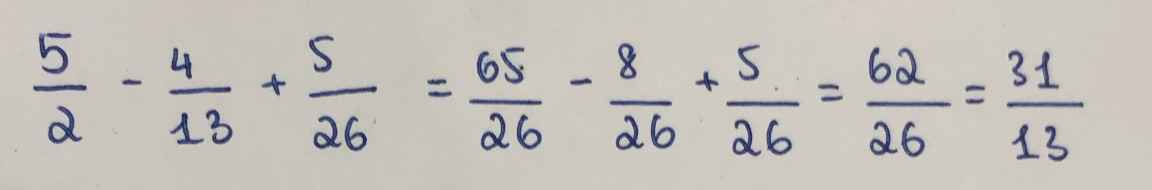 5/2 - 4/13 + 5/26 = 65/26 - 8/26 + 5/26 = 62/26 = 31/13